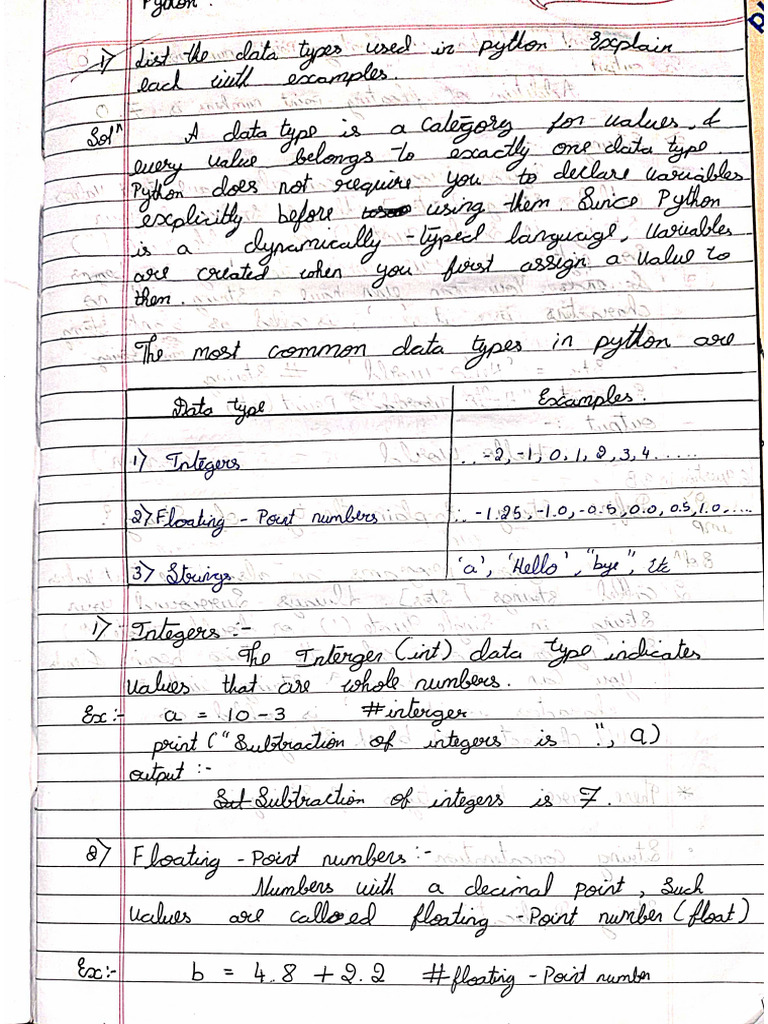 Python.
1) List the data types used in python. Explain
each with examples.
Solⁿ A data type is a category for values, &
every value belongs to exactly one data type.
Python does not require you to declare variables
explicitly before using them. Since Python
is a dynamically-typed language, variables
are created when you first assign a value to
them.
The most common data types in python are
Data type Examples.
1) Integers ..-2,-1,0,1,2,3,4.....
2) Floating-Point numbers ..-1.25,-1.0,-0.5,0.0,0.5,1.0,....
3) Strings 'a', 'Hello', "bye", Etc
1) Integers:-
The Interger (int) data type indicates
values that are whole numbers.
Ex:- a = 10-3 #interger
print ("Subtraction of integers is :", a)
output :-
Subtraction of integers is 7.
2) Floating-Point numbers:-
Numbers with a decimal point, such
values are called floating-Point number (float)
Ex:- b = 4.8 + 2.2 #floating-Point number